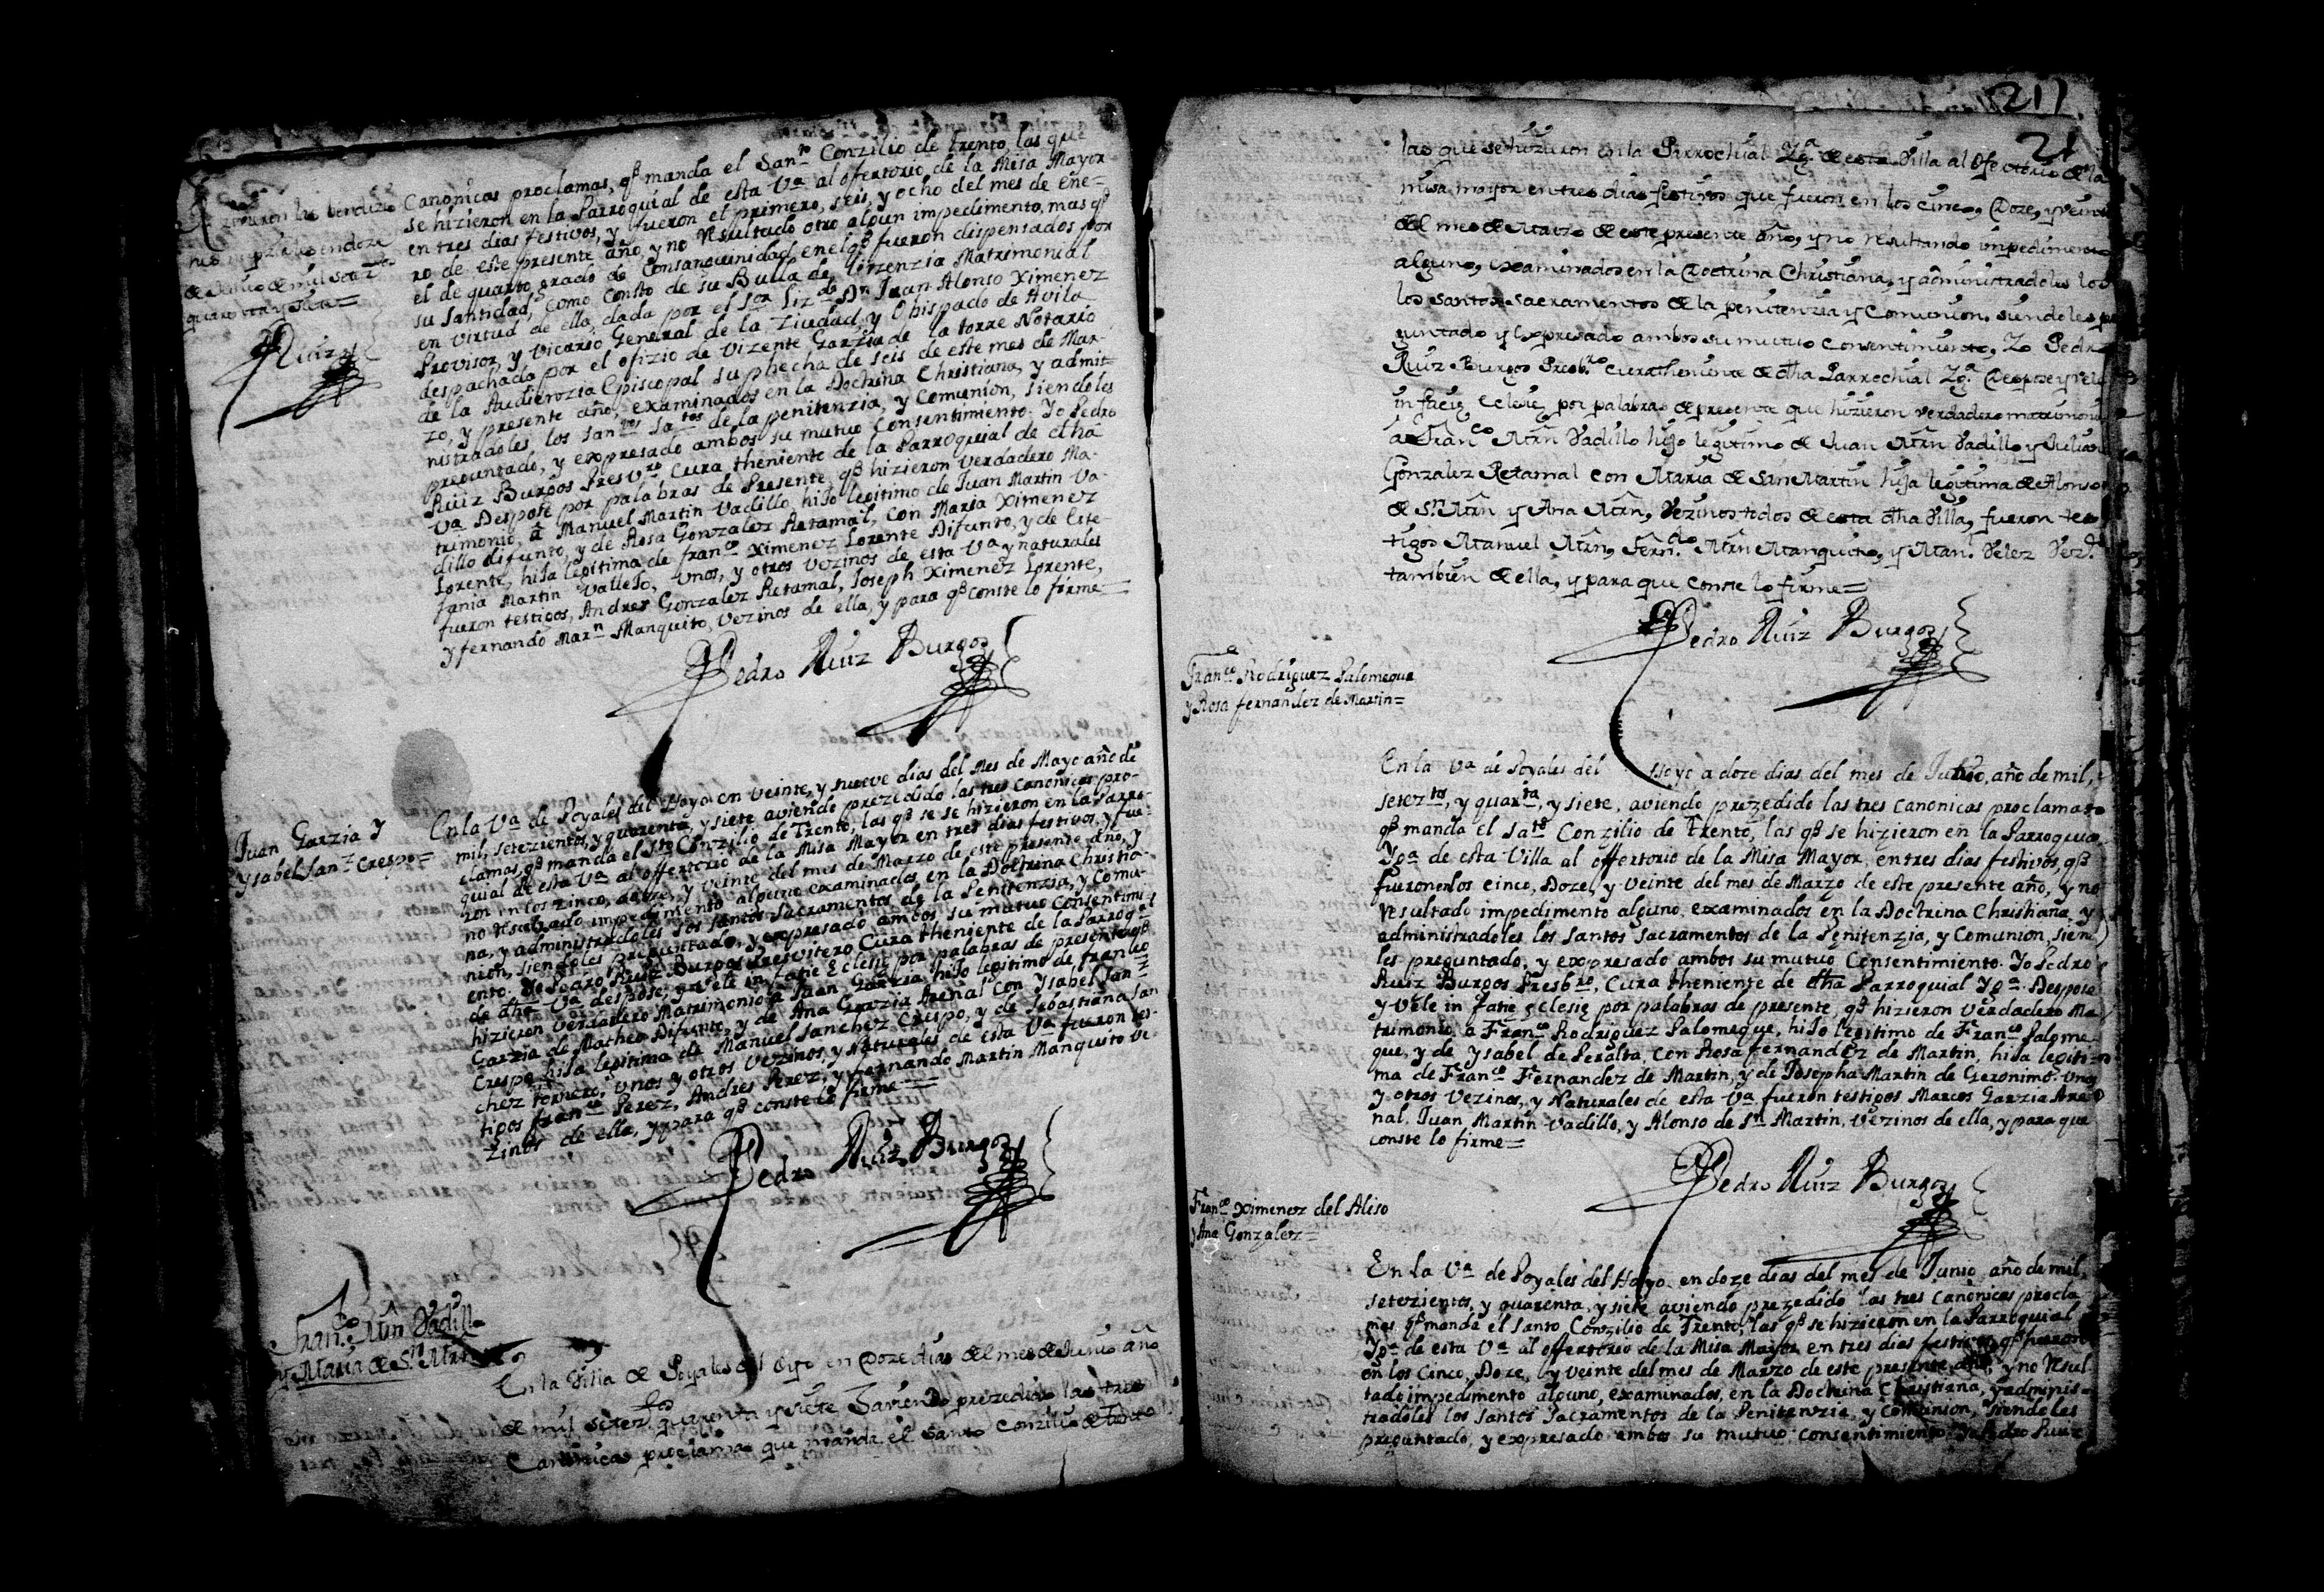 Canonicas proclamas, q̃ manda el San.to Conzilio de Trento, las que
se hizieron en la Parroquial de esta V.a al ofertorio de la Misa Mayor
en tres dias festivos, y fueron el primero, seis, y ocho del mes de Ene=
ro de este presente año, y no resultado otro algun impedimento, mas q̃
el de quarto grado de Consanguinidad, en el q̃ fueron dispensados por
su Santidad, como Consto de su Bulla de lizenzia Matrimonial
en virtud de ella, dada por el S.or Liz.do D.n Juan Alonso Ximenez
Provisor, y Vicario General de la Ziudad, y Obispado de Avila
despachada por el ofizio de Vizente Garzia de la torre Notario
de la Audienzia Episcopal su phecha de seis de este mes de Mar-
zo, y presente año, examinados en la Doctrina Christiana, y admi-
nistradoles los santos Sa.tos de la penitenzia, y Comunion, siendoles
preguntado, y expresado ambos su mutuo Consentimiento. Yo Pedro
Ruiz Burgos Presv.ro Cura theniente de la Parroquial de dha
V.a Despose por palabras de Presente, q̃ hizieron Verdadero Ma-
trimonio, â Manuel Martin Vadillo hijo legitimo de Juan Martin Va-
dillo difunto, y de Rosa Gonzalez Retamal, con Maria Ximenez
Lorente, hija legitima de fran.co Ximenez Lorente Difunto, y de Este-
fania Martin Vallejo, Unos, y otros vezinos de esta V.a y naturales
fueron testigos, Andres Gonzalez Retamal, Joseph Ximenez Lorente,
y fernando Mar.n Manquito, Vezinos de ella, y para q̃ conste lo firme=
Pedro Ruiz Burgos
en doze
de Junio de mil setez.tos
quarenta y siete=
Ruiz
Juan Garzia Y
Ysabel San.z Crespo=
En la V.a de Poyales del Hoyo en veinte, y nueve dias del Mes de Mayo año de
mil, setezientos, y quarenta, y siete aviendo prezedido las tres Canonicas pro-
clamas, q̃ manda el S.to Conzilio de Trento, las q̃ se se hizieron en la Parro-
quial de esta V.a al offertorio de la Misa Mayor en tres dias festivos, y fue-
ron en los zinco, doze, y veinte del mes de Marzo de este presente año, y
no resultado impedimento alguno examinados en la Doctrina Christia-
na, y administradoles los santos Sacramentos de la Penitenzia, y Comu-
nion, siendoles preguntado, y expresado ambos su mutuo Consentimi-
ento. Yo Pedro Ruiz Burgos Presvitero Cura theniente de la Parroq.l
de dha V.a despose, y vele in fatie Eclesię por palabras de presente q̃
hizieron verdadero Matrimonio a Juan Garzia, hijo legitimo de fran.co
Garzia de Matheo Difunto, y de Ana Garzia Arenal con Ysabel San.z
Crespo, hija legitima de Manuel Sanchez Crespo, y de Sebastiana San
chez tornero, Unos y otros Vezinos, y Naturales de esta V.a fueron tes-
tigos fran.co Perez, Andres Perez, y fernando Martin Manquito Ve
zinos de ella, y para q̃ conste lo firme=
Pedro Ruiz Burgos
Fran.co Mrn Vadillo
y Maria de S.n Mrn
En la Villa de Poyales del Oyo en Doze dias del mes de Junio año
de mil setez.tos quarenta y siete Haviendo prezedido las tres
Canonicas proclamas que manda el Santo Conzilio de Trento
211
21
las que se hizieron en la Parrochial Yg.a de esta Villa al Ofertorio de la
misa mayor en tres dias festivos que fueron en los cinco, Doze, y veinte
del mes de Marzo de este presente año, y no resultando impedimento
alguno, examinados en la Doctrina Christiana, y administradoles los
los santos sacramentos de la penitenzia y Comunion. siendoles pre
guntado y expresado ambos su mutuo consentimiento, Yo Pedro
Ruiz Burgos Presb.ro cura theniente de dha Parrochial Yg.a Despose y vele
in facię Eclesię por palabras de presente que hizieron verdadero matrimonio
a Fran.co Mrn Vadillo hijo legitimo de Juan Mrn Vadillo y Juliana
Gonzalez Retamal con Maria de San Martin hija legitima de Alonso
de S.n Mrn y Ana Mrn, Vezinos todos de esta dha Villa, fueron tes
tigos Manuel Mrn, Fern.do Mrn Manquito, y Man.l Velez Vez.s
tambien de ella, y para que conste lo firme=
Pedro Ruiz Burgos
Fran.co Rodriguez Palomeque
y Rosa fernandez de Martin=
En la V.a de Poyales del Hoyo a doze dias del mes de Junio, año de mil,
setez.tos, y quar.ta, y siete, aviendo prezedido las tres canonicas proclamas
q̃ manda el Sa.to Conzilio de Trento, las q̃ se hizieron en la Parroquia
Yg.a de esta Villa al offertorio de la Misa Mayor, en tres dias festivos, q̃
fueron en los cinco, Doze, y veinte del mes de Marzo de este presente año, y no
resultado impedimento alguno, examinados en la Doctrina Christiana, y
administradoles los santos sacramentos de la Penitenzia, y Comunion, siendo
les preguntado, y expresado ambos su mutuo Consentimiento. Yo Pedro
Ruiz Burgos Presb.ro, Cura theniente de dha Parroquial Yg.a Despose
y Vele in fatie Eclesię por palabras de presente, q̃ hizieron Verdadero Ma
trimonio, a Fran.co Rodriguez Palomeque, hijo legitimo de Fran.co Palome-
que, y de Ysabel de Peralta, con Rosa fernandez de Martin, hija legiti-
ma de Fran.co Fernandez de Martin, y de Josepha Martin de Geronimo. Unos
y otros Vezinos, y Naturales de esta V.a fueron testigos Marcos Garzia Are
nal, Juan Martin Vadillo, y Alonso de S.n Martin, Vezinos de ella, y para que
conste lo firme=
Pedro Ruiz Burgos
Fran.co Ximenez del Aliso
y Ana Gonzalez=
En la V.a de Poyales del Hoyo en doze dias del mes de Junio año de mil,
setezientos, y quarenta, y siete aviendo prezedido las tres Canonicas procla
mas q̃ manda el santo Conzilio de Trento, las q̃ se hizieron en la Parroquial
Yg.a de esta V.a al offertorio de la Misa Mayor en tres dias festivos, q̃ fueron
en los Cinco, Doze, y veinte del mes de Marzo de este presente año, y no resul
tado impedimento alguno, examinados, en la Doctrina Christiana, y adminis-
tradoles los santos sacramentos de la Penitenzia, y Comunion, siendoles
preguntado, y expresado ambos su mutuo consentimiento Yo Pedro Ruiz